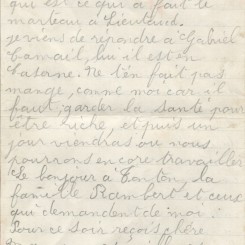 qui est ce qui a fait le
marteau à Lieutaud.
je viens de répondre à Gabriel
Camail, lui il est en
caserne. Ne t'en fait pas
mange, comme moi car il
faut garder la santé pour
être riche, et puis un
jour viendras ou nous
pourrons encore travailler
Le bonjour à Tonton, la
famille Rambert et ceux
qui demandent de moi.
Pour ce soir reçois chère